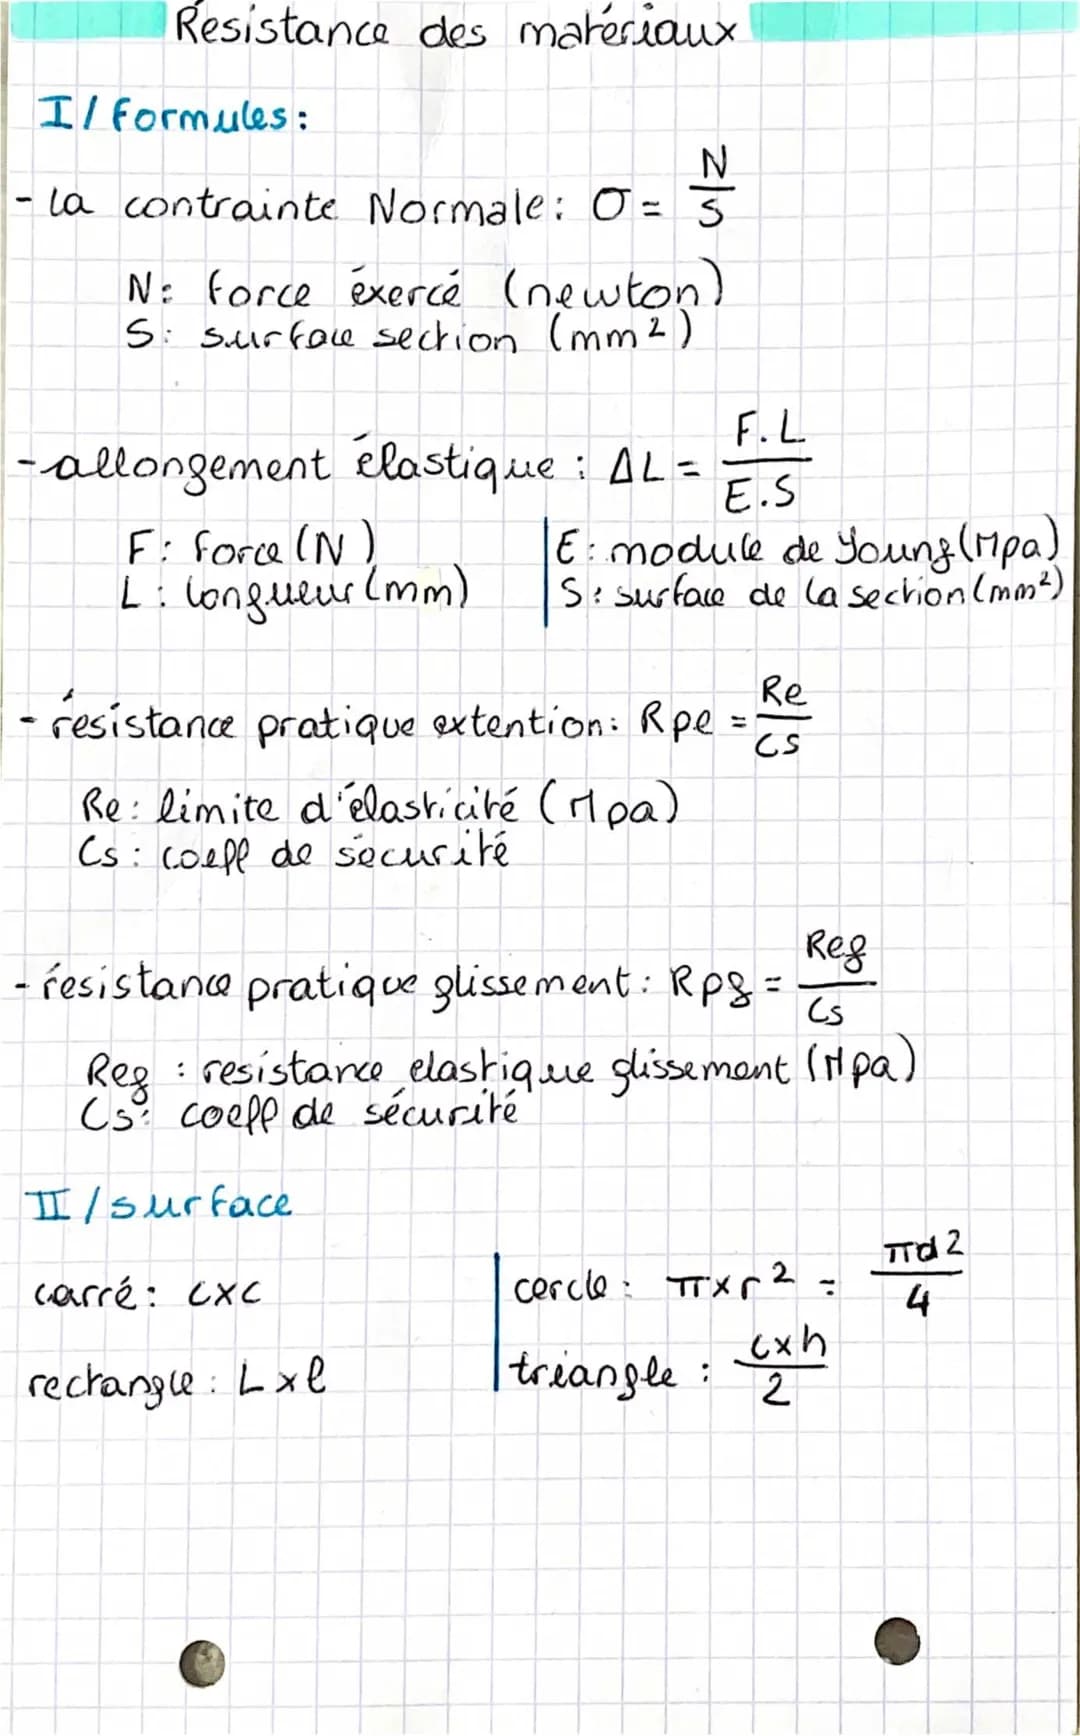 Résistance des matériaux
I/ Formules:
- la contrainte Normale: σ = N/S
N: force éxercé (newton)
S: surface section (mm²)
- allongement élastique : ΔL = F.L/E.S
F: force (N)
L: longueur (mm)
E: module de Young (Mpa)
S: surface de la section (mm²)
- résistance pratique extention: Rpe = Re/Cs
Re: limite d'élasticité (Mpa)
Cs: coeff de sécurité
- résistance pratique glissement: Rpg = Reg/Cs
Reg : resistance elastique glissement (Mpa)
Cs: coeff de sécurité
II / surface
carré: c×c
rectangle: L×l
cercle: π×r² = πd²/4
triangle : c×h/2